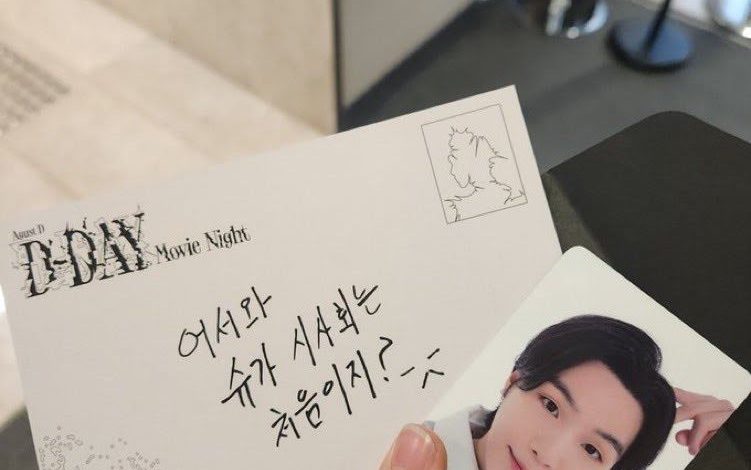 AGUST D
D-DAY Movie Night
어서와
슈가 시사회는
처음이지? ^^